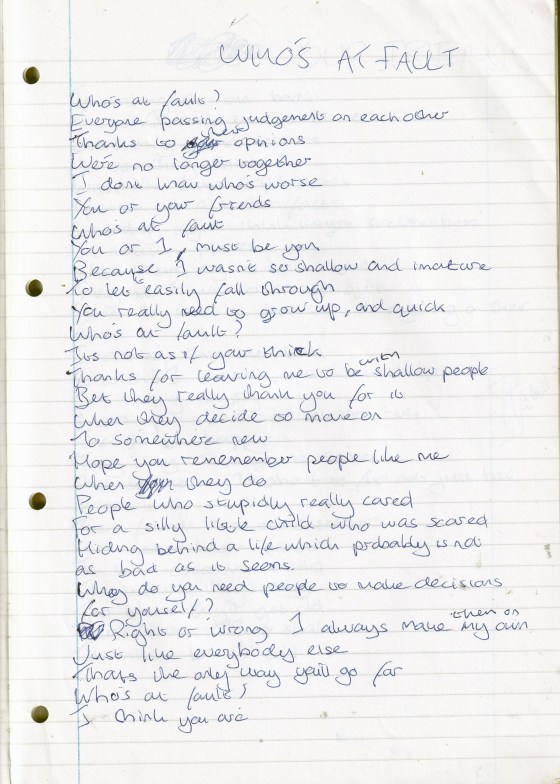 WHO'S AT FAULT
Who's at fault?
Everyone passing judgement on each other
Thanks to their opinions
We're no longer together
I dont know who's worse
You or your friends
Who's at fault
You or I, must be you
Because I wasn't so shallow and imature
To let easily fall through
You really need to grow up, and quick
Who's at fault?
Its not as if your thick
Thanks for leaving me to be with shallow people
Bet they really thank you for it
When they decide to move on
To somewhere new
Hope you rememember people like me
When they do
People who stupidly really cared
For a silly little child who was scared
Hiding behind a life which probably is not
as bad as it seems.
Why do you need people to make decisions
for yourself?
Right or wrong I always make them on my own
Just like everybody else
Thats the only way you'll go far
Who's at fault?
I think you are